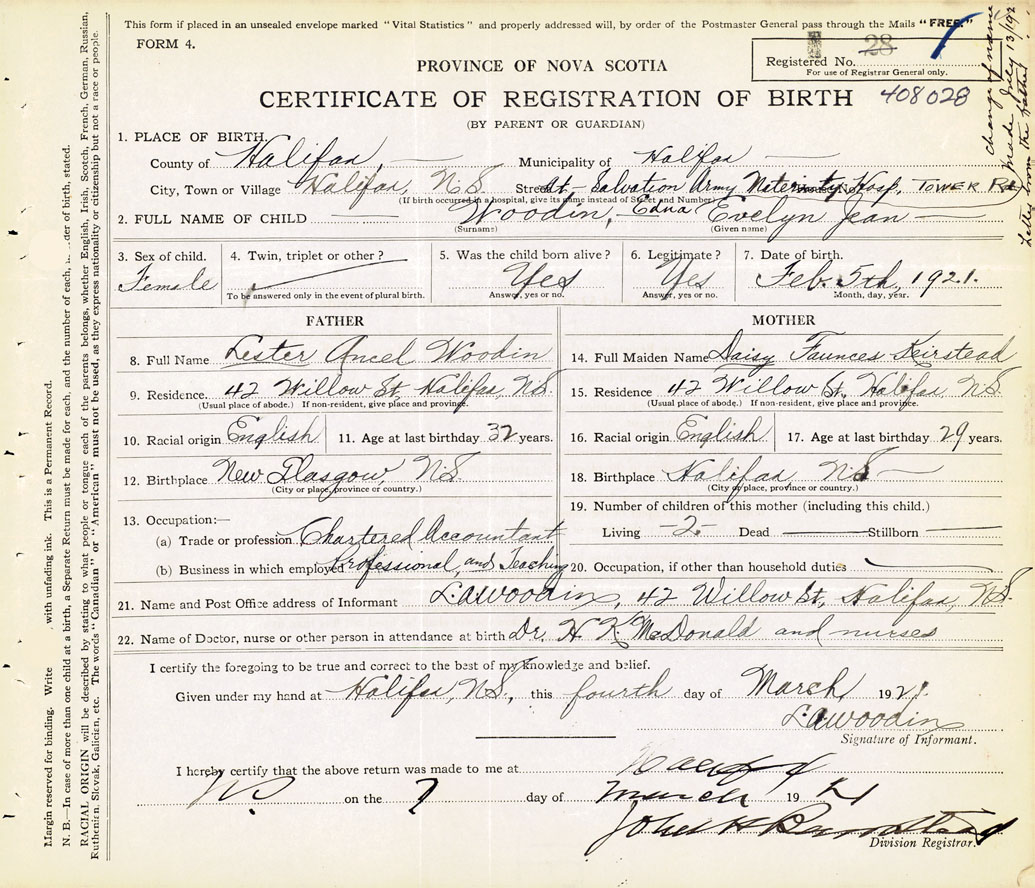 This form if placed in an unsealed envelope marked "Vital Statistics" and properly addressed will, by order of the Postmaster General pass through the Mails "FREE."
FORM 4.
28
Registered No.
For use of Registrar General only.
PROVINCE OF NOVA SCOTIA
CERTIFICATE OF REGISTRATION OF BIRTH
408028
(BY PARENT OR GUARDIAN)
1. PLACE OF BIRTH
County of Halifax, Municipality of Halifax
City, Town or Village Halifax, N.S. Street At - Salvation Army Maternity Hosp. TOWER Rd
(If birth occurred in a hospital, give its name instead of Street and Number)
2. FULL NAME OF CHILD Woodin, Edna Evelyn Jean
(Surname) (Given name)
3. Sex of child. Female
4. Twin, triplet or other?
To be answered only in the event of plural birth.
5. Was the child born alive? Yes
Answer, yes or no.
6. Legitimate? Yes
Answer, yes or no.
7. Date of birth. Feb. 5th, 1921.
Month, day, year.
FATHER
8. Full Name Lester Ancel Woodin
9. Residence. 42 Willow St, Halifax, N.S.
(Usual place of abode.) If non-resident, give place and province.
10. Racial origin English 11. Age at last birthday 32 years.
12. Birthplace New Glasgow, N.S.
(City or place, province or country.)
13. Occupation:—
(a) Trade or profession Chartered Accountant
(b) Business in which employed Professional, and Teaching
MOTHER
14. Full Maiden Name Daisy Faunces Keirstead
15. Residence 42 Willow St, Halifax, N.S.
(Usual place of abode.) If non-resident, give place and province.
16. Racial origin English 17. Age at last birthday 29 years.
18. Birthplace Halifax N.S.
(City or place, province or country.)
19. Number of children of this mother (including this child.)
Living -2- Dead Stillborn
20. Occupation, if other than household duties
21. Name and Post Office address of Informant L.A. Woodin, 42 Willow St, Halifax, N.S.
22. Name of Doctor, nurse or other person in attendance at birth Dr. H. K. McDonald and nurses
I certify the foregoing to be true and correct to the best of my knowledge and belief.
Given under my hand at Halifax, N.S., this fourth day of March 1921.
L.A. Woodin
Signature of Informant.
I hereby certify that the above return was made to me at
N.S. on the 7 day of March 1921
Division Registrar.
Margin reserved for binding. Write with unfading ink. This is a Permanent Record.
N. B.—In case of more than one child at a birth, a Separate Return must be made for each, and the number of each, in order of birth, stated.
RACIAL ORIGIN will be described by stating to what people or tongue each of the parents belongs, whether English, Irish, Scotch, French, German, Russian,
Ruthenian, Slovak, Galician, etc. The words "Canadian" or "American" must not be used, as they express nationality or citizenship but not a race or people.
change of name
made July 13/192
Letter from the father